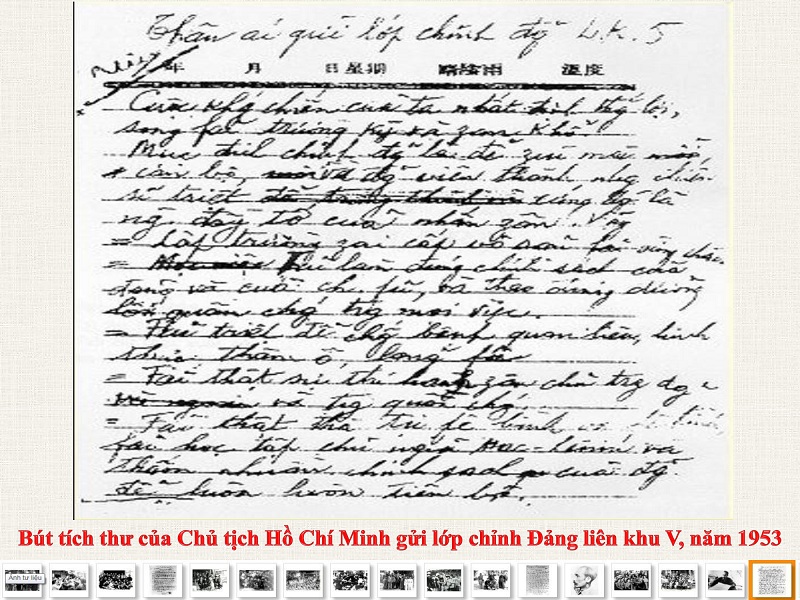 Thân ái gửi lớp chỉnh đg L.K. 5
年 月 日星期 晴陰雨 溫度
Cuộc khg chiến của ta nhất định thg lợi,
song fải trường kỳ và zan khổ.
Mục đích chỉnh đg là để zúi mỗi
cán bộ, đg viên thành nhg chiến
sĩ triệt cúng đg là
ng đầy tớ của nhân zân. Vậy
= Lập trường zai cấp vô sản fải vững chắc
= Fải làm đúng chính sách của
đảng và của ch. fủ, và theo đúng đường
lối quần chg trg mọi việc.
= Fải triệt để chg bệnh quan liêu, hình
thức tham ô, lãng fí
= Fải thật sự thi hành zân chủ trg đg
và trg quần chg.
= Fải thật thà tự fê bình và
fải học tập chủ nghĩa Mac-Lênin và
thấm nhuần chính sách của đg
để luôn luôn tiến bộ.
Bút tích thư của Chủ tịch Hồ Chí Minh gửi lớp chỉnh Đảng liên khu V, năm 1953
Ảnh tư liệu